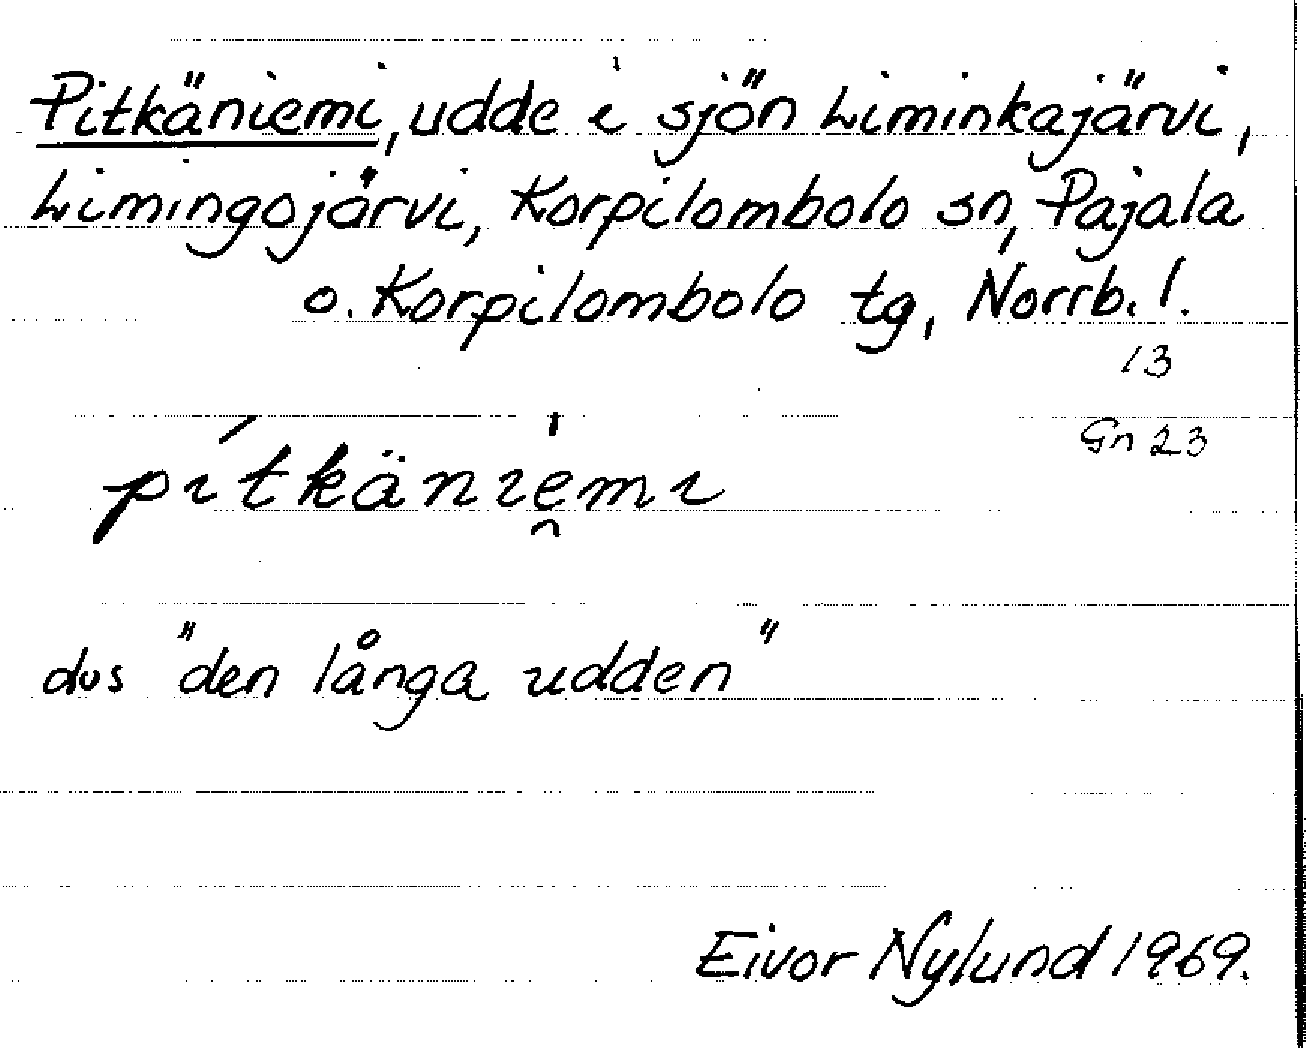 Pitkäniemi, udde i sjön Liminkajärvi,
Limingojärvi, Korpilombolo sn, Pajala
o. Korpilombolo tg, Norrb. l.
13
Gn 23
pítkänie̯mi
dvs "den långa udden"
Eivor Nylund 1969.